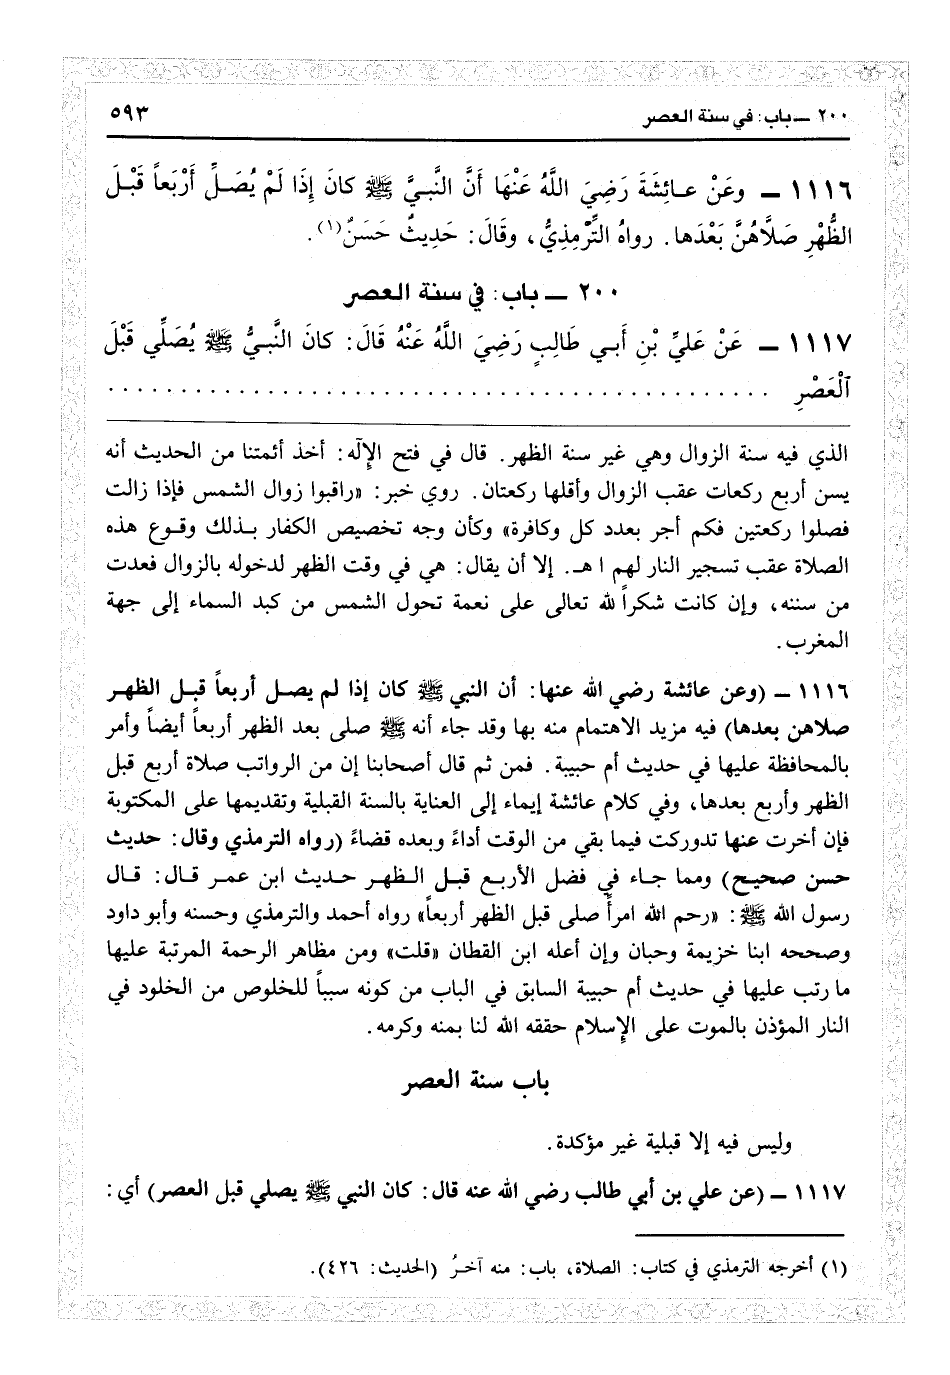 ٢٠٠ ــ باب: في سنة العصر ٥٩٣
١١١٦ ــ وعَنْ عـائِشَةَ رَضِيَ اللَّهُ عَنْهَا أَنَّ النَّبيَّ ﷺ كانَ إِذَا لَمْ يُصَلِّ أَرْبَعاً قَبْلَ
الظُّهْرِ صَلَّاهُنَّ بَعْدَها. رواهُ التِّرْمِذِيُّ، وقَالَ: حَدِيثٌ حَسَنٌ(١).
٢٠٠ ــ باب: في سنة العصر
١١١٧ ــ عَنْ عَليِّ بْنِ أَبـي طَالِبٍ رَضِيَ اللَّهُ عَنْهُ قَالَ: كانَ النَّبيُّ ﷺ يُصَلِّي قَبْلَ
ٱلْعَصْرِ . . . . . . . . . . . . . . . . . . . . . . . . . . . . . . . . . . . . . . . . . . . . . .
الذي فيه سنة الزوال وهي غير سنة الظهر. قال في فتح الإلٰه: أخذ أئمتنا من الحديث أنه
يسن أربع ركعات عقب الزوال وأقلها ركعتان. روي خبر: «راقبوا زوال الشمس فإذا زالت
فصلوا ركعتين فكم أجر بعدد كل وكافرة» وكأن وجه تخصيص الكفار بـذلك وقـوع هذه
الصلاة عقب تسجير النار لهم ا هـ. إلا أن يقال: هي في وقت الظهر لدخوله بالزوال فعدت
من سننه، وإن كانت شكراً لله تعالى على نعمة تحول الشمس من كبد السماء إلى جهة
المغرب.
١١١٦ ــ (وعن عائشة رضي الله عنها: أن النبي ﷺ كان إذا لم يصـل أربعاً قبـل الظهـر
صلاهن بعدها) فيه مزيد الاهتمام منه بها وقد جاء أنه ﷺ صلى بعد الظهر أربعاً أيضاً وأمر
بالمحافظة عليها في حديث أم حبيبة. فمن ثم قال أصحابنا إن من الرواتب صلاة أربع قبل
الظهر وأربع بعدها، وفي كلام عائشة إيماء إلى العناية بالسنة القبلية وتقديمها على المكتوبة
فإن أخرت عنها تدوركت فيما بقي من الوقت أداءً وبعده قضاءً (رواه الترمذي وقال: حديث
حسن صحيح) ومما جـاء في فضل الأربـع قبـل الـظهـر حـديث ابن عمـر قـال: قـال
رسول الله ﷺ: «رحم الله امرأً صلى قبل الظهر أربعاً» رواه أحمد والترمذي وحسنه وأبو داود
وصححه ابنا خزيمة وحبان وإن أعله ابن القطان «قلت» ومن مظاهر الرحمة المرتبة عليها
ما رتب عليها في حديث أم حبيبة السابق في الباب من كونه سبباً للخلوص من الخلود في
النار المؤذن بالموت على الإسلام حققه الله لنا بمنه وكرمه.
باب سنة العصر
وليس فيه إلا قبلية غير مؤكدة.
١١١٧ ــ (عن علي بن أبي طالب رضي الله عنه قال: كان النبي ﷺ يصلي قبل العصر) أي:
(١) أخرجه الترمذي في كتاب: الصلاة، باب: منه آخـرُ (الحديث: ٤٢٦).